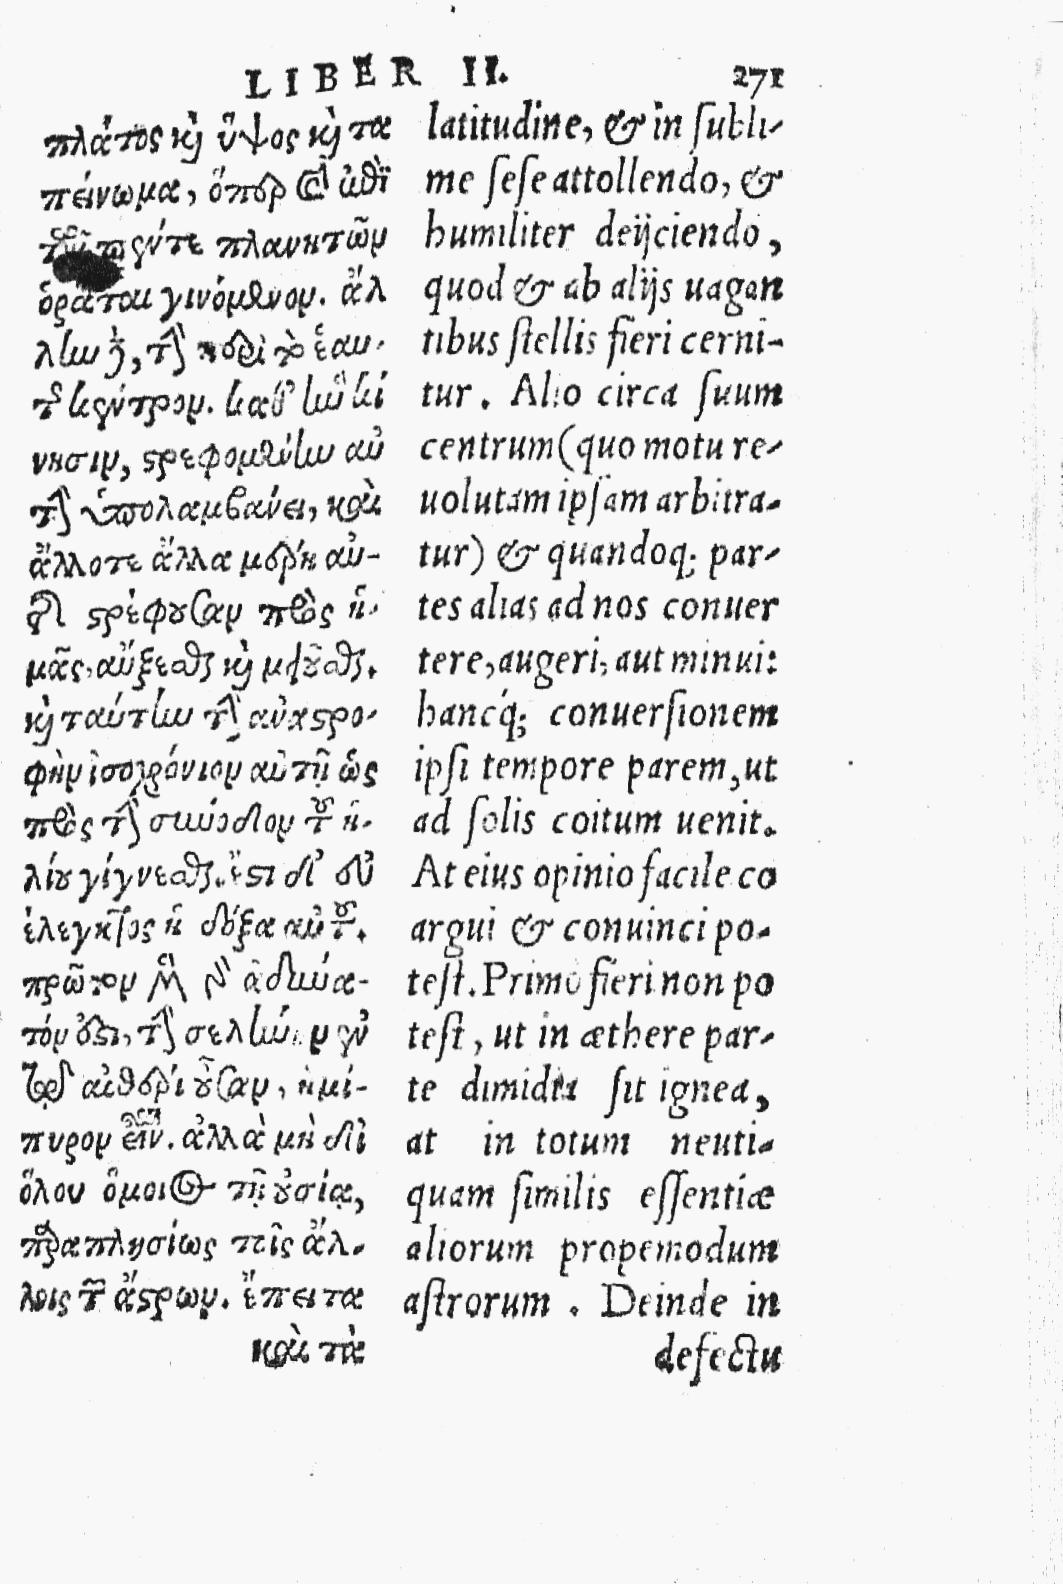 LIBER II. 271
πλάτος καὶ ὕψος καὶ τα
πείνωμα, ὅπερ καὶ ἐπὶ
τῶν πέντε πλανητῶν
ὁρᾶται γινόμενον. ἄλ
λην δὲ, τὴν περὶ τὸ ἑαυ-
τοῦ κέντρον. καθ' ἣν κί
νησιν, στρεφομένην αὐ
τὴν ὑπολαμβάνει, καὶ
ἄλλοτε ἄλλα μέρη αὐ-
τῆς στρέφουσαν πρὸς ἡ-
μᾶς, αὔξεσθαι καὶ μειοῦσθαι.
καὶ ταύτην τὴν ἀναστρο-
φὴν ἰσοχρόνιον αὐτῇ ὡς
πρὸς τὴν σύνοδον τοῦ ἡ-
λίου γίγνεσθαι. ἔστι δ' εὐ
έλεγκτος ἡ δόξα αὐτοῦ.
πρῶτον μὲν γὰρ ἀδύνα-
τόν ἐστι, τὴν σελήνην ἐν
τῷ αἰθέρι οὖσαν, ἡμί-
πυρον εἶναι. ἀλλὰ μὴ δι
ὅλου ὅμοιος τῇ οὐσίᾳ,
παραπλησίως τοῖς ἄλ-
λοις τῶν ἄστρων. ἔπειτα
καὶ τὰ
latitudine, & in subli-
me sese attollendo, &
humiliter deijciendo,
quod & ab alijs uagan
tibus stellis fieri cerni-
tur. Alio circa suum
centrum (quo motu re-
uolutam ipsam arbitra-
tur) & quandoq; par-
tes alias ad nos conuer
tere, augeri, aut minui:
hancq́; conuersionem
ipsi tempore parem, ut
ad solis coitum uenit.
At eius opinio facile co
argui & conuinci po-
test. Primò fieri non po
test, ut in æthere par-
te dimidia sit ignea,
at in totum neuti-
quam similis essentiæ
aliorum propemodum
astrorum. Deinde in
defectu